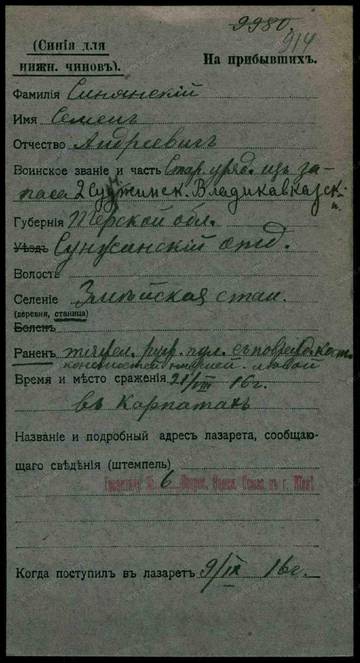 9980
914
(Синія для
нижн. чиновъ).
На прибывшихъ.
Фамилія Синянскій
Имя Семенъ
Отчество Андреевичъ
Воинское званіе и часть Стар. уряд. изъ за-
паса 2 Сунжинск. Владикавказск.
Губернія Терской обл.
Уѣздъ Сунженскій отд.
Волость
Селеніе Змейская стан.
(деревня, станица)
Боленъ
Раненъ руж. пул. съ поврежд. кост.
конечностей левой
Время и мѣсто сраженія 21/VIII 16 г.
въ Карпатахъ
Названіе и подробный адресъ лазарета, сообщаю-
щаго свѣдѣнія (штемпель)
6
Когда поступилъ въ лазаретъ 9/IX 16 г.